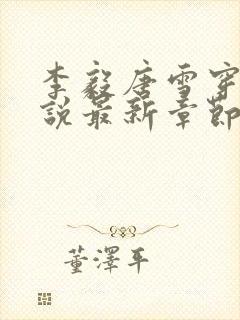 李毅唐雪穿
说最新章節
董澤平